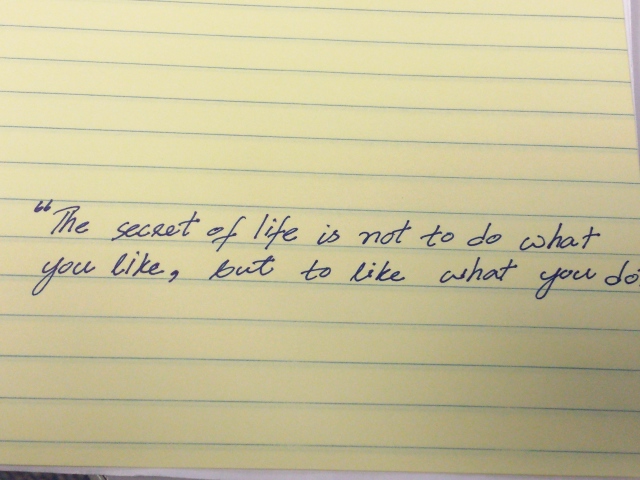 “The secret of life is not to do what
you like, but to like what you do